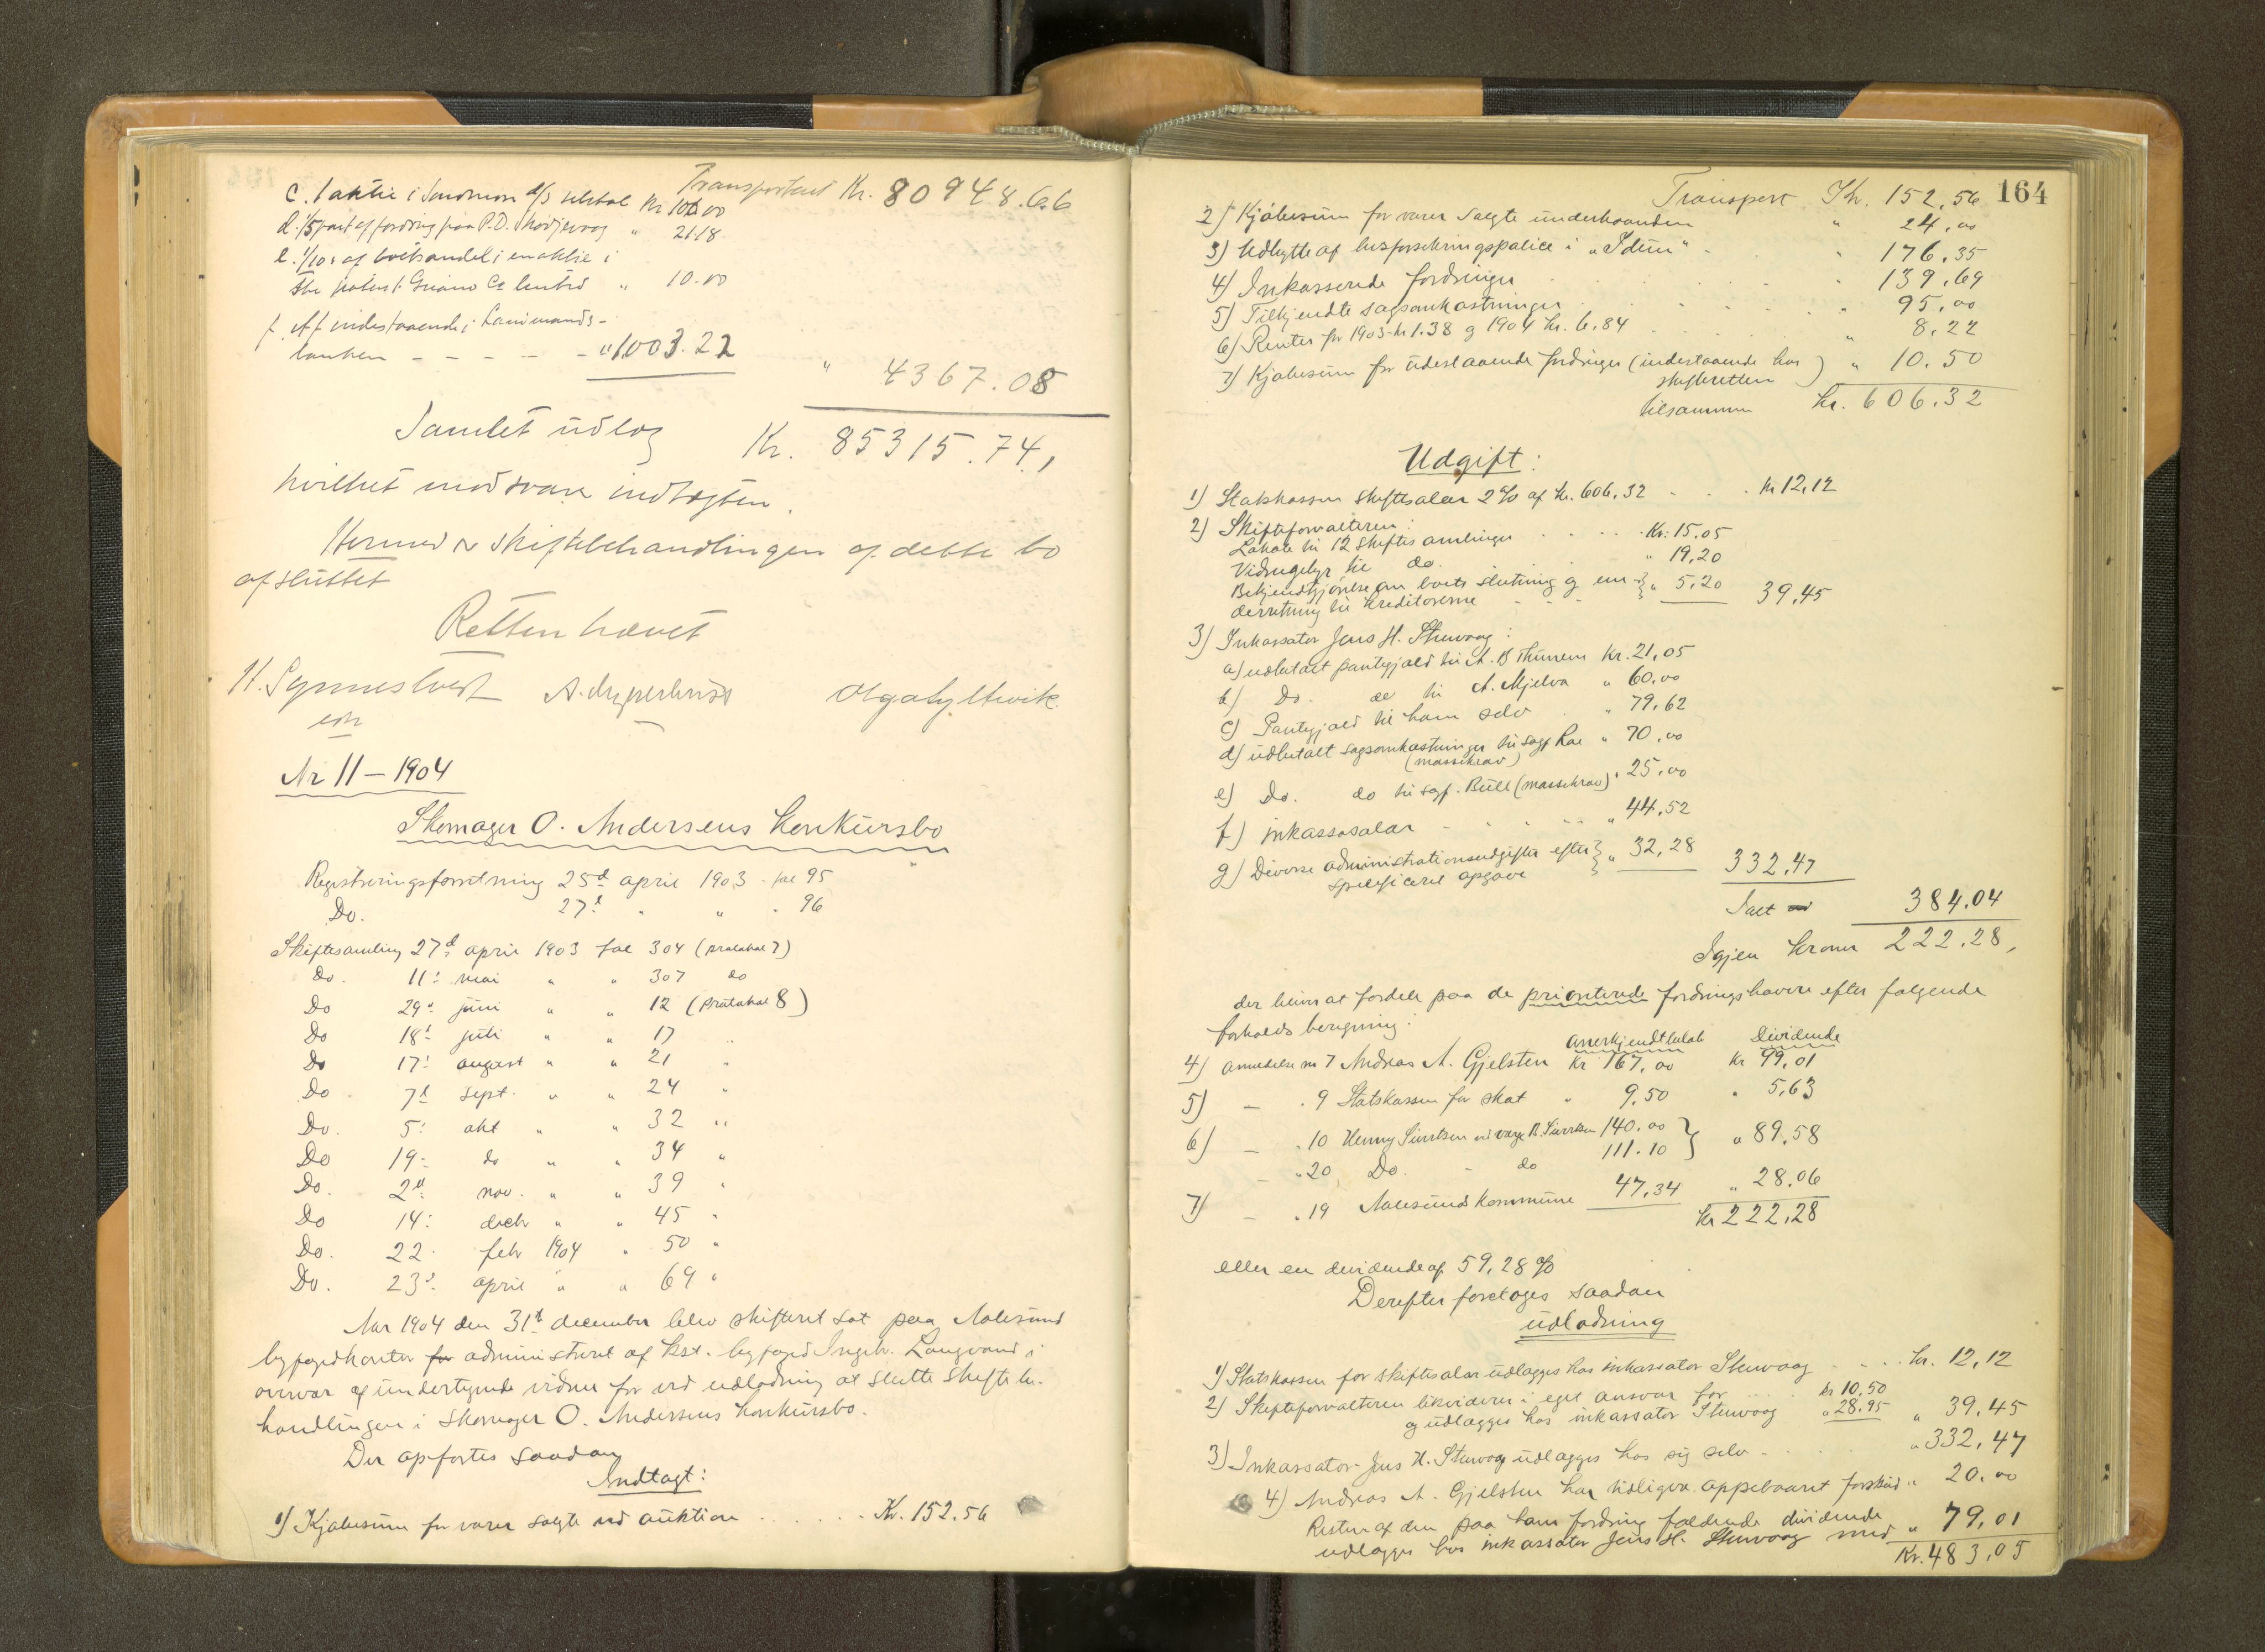 Transportert Kr. 80948.66
c. 1 aktie i Søndmøre d/s selskab Kr 100.00
d. 1/5 part af fordring paa P.D. Skodjevaag " 2118
e. 1/10 af boets andel i en aktie i
the patent Guano Co limited " 10.00
f. Af indestaaende i Landmands-
banken - - - - - " 1003.22
" 4367.08
Samlet udlæg Kr. 85315.74,
hvilket modsvarer indtægten.
Hermed er skiftebehandlingen af dette bo
afsluttet
Retten hævet
H. Synnestvedt
cst
Nr 11 – 1904
Skomager O. Andersens Konkursbo
Registreringsforretning 25d april 1903 - fol 95
Do. 27d " " " 96
Skiftesamling 27d april 1903 fol 304 (protokol 7)
Do. 11: mai " " 307 do
Do 29d juni " " 12 (protokol 8)
Do 18d juli " " 17 "
Do 17: august " " 21 "
Do 7d sept. " " 24 "
Do. 5: okt " " 32 "
Do 19: do " " 34 "
Do. 2d nov. " " 39 "
Do 14: decb " " 45 "
Do. 22. febr 1904 " 50 "
Do. 23d april " " 69 "
Aar 1904 den 31d december blev skifteret sat paa Aalesund
byfogedkontor for administreret af kst. byfoged Ingebr. Langvand i
overvær af undertegnede vidner for ved udlodning at slutte skiftebe-
handlingen i Skomager O. Andersens konkursbo.
Der opførtes saadan
Indtægt:
1) Kjøbesum for varer solgte ved auktion . . . . . . Kr. 152.56
164
Transport Kr. 152,56
2) Kjøbesum for varer solgte underhaanden " 24,00
3) Udbytte af husforsikringspolice i "Idun" - " 176,35
4) Inkasserede fordringer . . . . " 139,69
5) Tilkjendte sagsomkostninger . . . . 95,00
6) Renter for 1903 kr 1.38 og 1904 kr. 6,84 . . . . " 8,22
7) Kjøbesum for udestaaende fordringer (indestaaende hos
skifteretten) " 10.50
tilsammen kr. 606.32
Udgift:
1) Statskassen skiftesalær 2% af kr. 606,32 . . . kr 12,12
2) Skifteforvalteren:
Lokale til 12 skiftesamlinger . . . . . Kr. 15.05
Vidnegebyr til do. . . . " 19,20
Bekjendtgjørelse om boets slutning og un-
derretning til kreditorerne - - - } " 5,20 39,45
3) Inkassator Jens H. Stenvaag:
a) udbetalt pantegjæld til A. B Thunem Kr. 21,05
b) Do. do til A. Mjelva " 60,00
c) Pantegjæld til ham selv . " 79,62
d) udbetalt sagsomkostninger til sagf. Roe " 70,00
(massekrav)
e) Do. do til sagf. Bull (massekrav) " 25,00
f) inkassosalær - . . . . . " 44,52
g) Diverse administrationsudgifter efter
specificeret opgave } " 32,28 332,47
Ialt 384.04
Igjen kroner 222.28,
der bliver at fordele paa de prioriterede fordringshavere efter følgende
forholdsberegning:
Anerkjendt beløb Dividende
4) anmeldelse nr 7 Andreas A. Gjelsten kr 167,00 kr 99,01
5) — " 9 Statskassen for skat " 9,50 " 5,63
6) — " 10 Henny Sivertsen ved værge B. Sivertsen 140.00 } " 89,58
— " 20 Do. - do 111.10
7) — " 19 Aalesunds kommune 47,34 " 28.06
Kr 222,28
eller en dividende af 59,28 %
Derefter foretoges saadan
udlodning
1) Statskassen for skiftesalær udlægges hos inkassator Stenvaag - . . . kr. 12,12
2) Skifteforvalteren likviderer i eget ansvar for . . . kr 10.50
og udlægges hos inkassator Stenvaag " 28.95 " 39,45
3) Inkassator Jens H. Stenvaag udlægges hos sig selv - . . . " 332,47
4) Andreas A. Gjelsten har tidligere oppebaaret forskud " 20.00
Resten af den paa hans fordring faldende dividende
udlægges hos inkassator Jens H. Stenvaag med " 79,01
Kr. 483,05